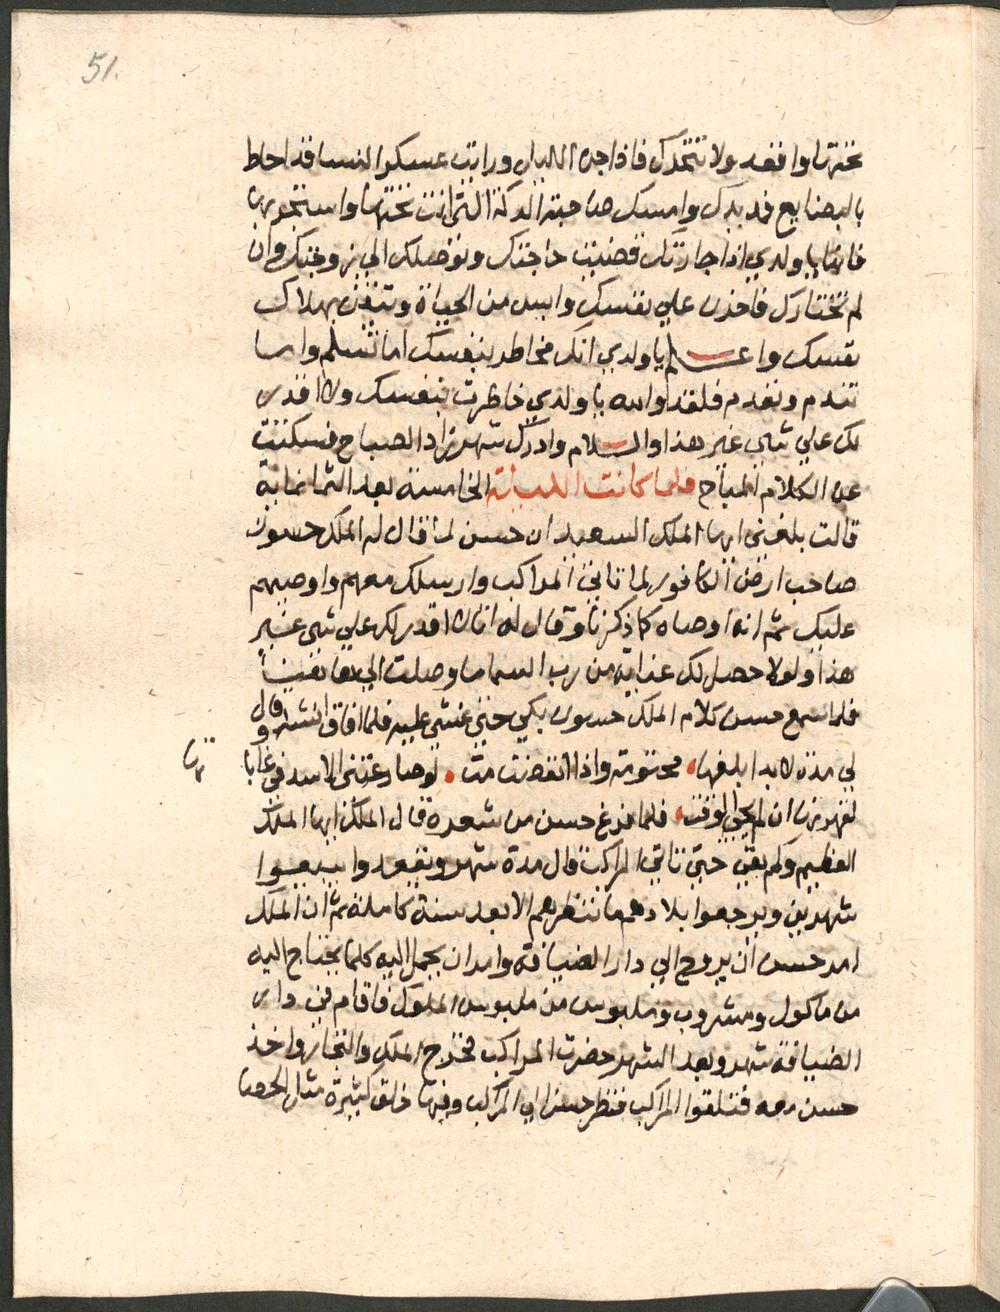 51.
تحتها واقعد ولا تتحرك فاذا جن الليل ورايت عسكر النسا قد احاط
بالبضايع فمد يدك وامسك صاحبة الدكة التي انت تحتها واستجير بها
فانها يا ولدي اذا جارتك قضيت حاجتك وتوصلك الي زوجتك وان
لم تختارك فاحزن علي نفسك وايس من الحياة وتيقن بهلاك
نفسك واعلم يا ولدي انك مخاطر بنفسك اما تسلم واما
تندم وتعدم فلقد والله يا ولدي خاطرت بنفسك ولا اقدر
لك علي شي غير هذا والسلام وادرك شهرزاد الصباح فسكتت
عن الكلام المباح فلما كانت الليلة الخامسة بعد الثمانماية
قالت بلغني ايها الملك السعيد ان حسن لما قال له الملك حسون
صاحب ارض الكافور لما تاتي المراكب وارسلك معهم واوصيهم
عليك ثم انه اوصاه كما ذكرنا وقال له انا لا اقدر لك علي شي غير
هذا ولولا حصل لك عناية من رب السما ما وصلت الي هنا
فلما سمع حسن كلام الملك حسون بكي حتي غشي عليه فلما افاق انشد وقال
لي مدة لا بد ابلغها محتومة واذا انقضت مت لو صارعتني الاسد في غاباتها
لقهرتها ان لم يجي الوقت فلما فرغ حسن من شعره قال للملك ايها الملك
العظيم وكم بقي حتي تاتي المراكب قال مدة شهر ويقعدوا يبيعوا
شهرين ويرجعوا بلادهم ما ننظرهم الا بعد سنة كاملة ثم ان الملك
امر حسن ان يروح الي دار الضيافة وامر ان يحمل اليه كلما يحتاج اليه
من ماكول ومشروب وملبوس من ملبوس الملوك فاقام في دار
الضيافة شهر وبعد الشهر حضرت المراكب فخرج الملك والتجار واخذ
حسن معه فتلقوا المراكب فنظر حسن الي المراكب وفيها خلق كثيرة مثل الحصا